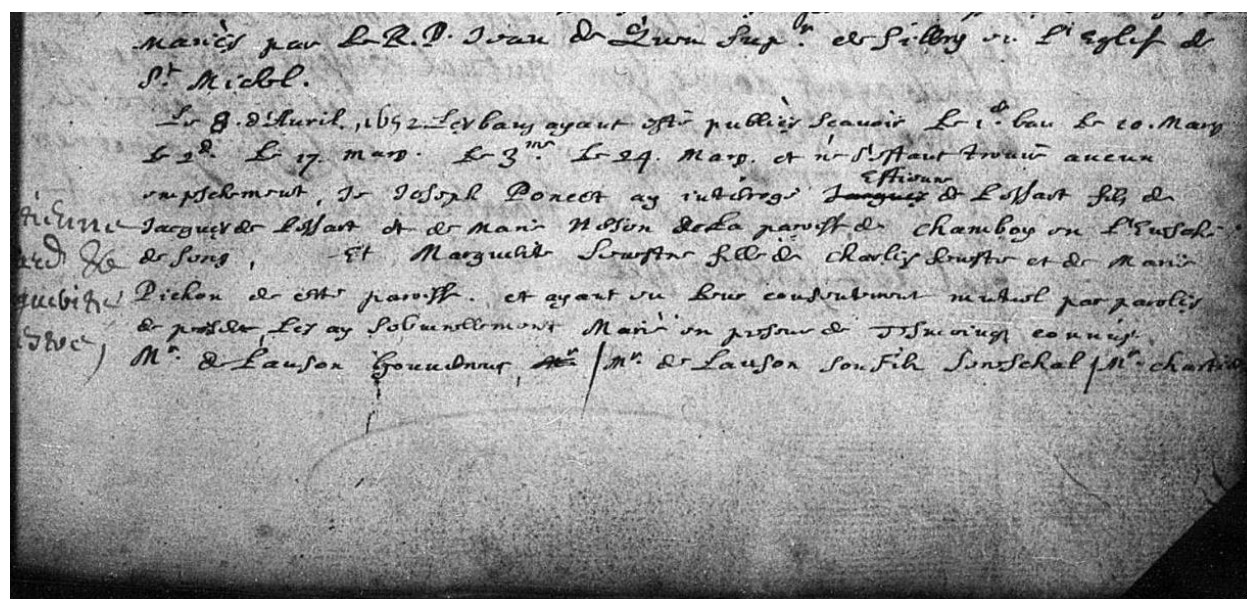 Mariès par Le R. P. Jean de Quen Sup.r de Sillery en L'Eglise de
St Michel.
Le 8. d'Auril. 1652 Les bans ayant esté publiès Scauoir Le 1.d ban Le 10. Mars
Le 2d. Le 17. mars. Le 3me. Le 24. Mars. et ne s'estant trouuè aucun
empeschement, Je Joseph Poncet ay interrogé Jacques Estienne de Lessart fils de
Jacques de Lessart et de Marie de La paroisse de Chamboy en L'Euesché
de Sens, Et Marguerite Seuestre fille de Charles Seuestre et de Marie
Pichon de cette paroisse. et ayant eu Leur consentement mutuel par paroles
de present Les ay Solemnellement Mariè en presence de Tesmoings connus,
Mr. de Lauson Gouuerneur, / Mr. de Lauson son fils Seneschal / Mr. chartier
tienne
guerite